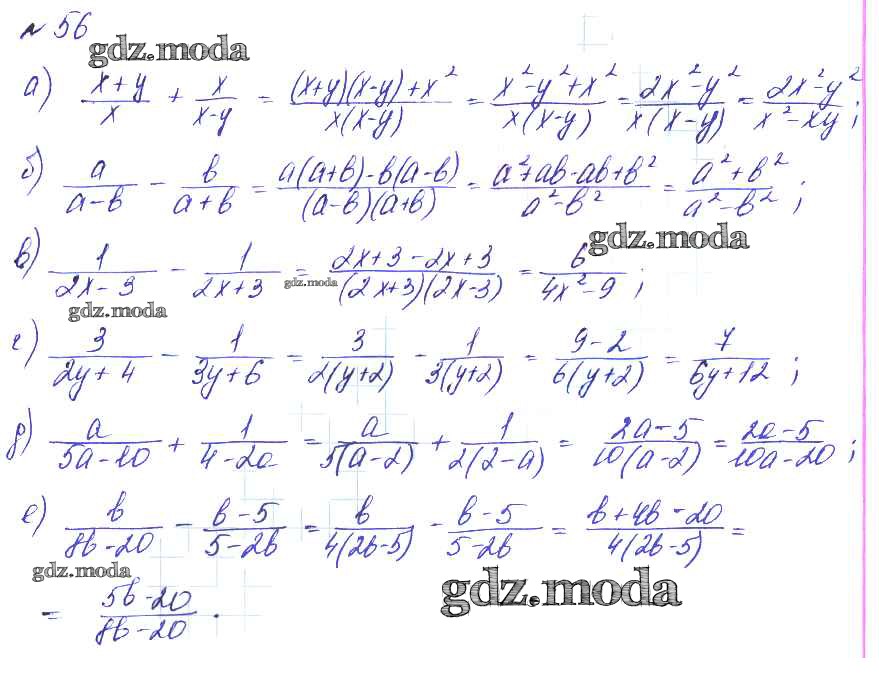 № 56
gdz.moda
а) (x+y)/x + x/(x-y) = ((x+y)(x-y)+x²)/(x(x-y)) = (x²-y²+x²)/(x(x-y)) = (2x²-y²)/(x(x-y)) = (2x²-y²)/(x²-xy);
б) a/(a-b) - b/(a+b) = (a(a+b)-b(a-b))/((a-b)(a+b)) = (a²+ab-ab+b²)/(a²-b²) = (a²+b²)/(a²-b²);
gdz.moda
в) 1/(2x-3) - 1/(2x+3) = (2x+3-2x+3)/((2x+3)(2x-3)) = 6/(4x²-9);
gdz.moda
gdz.moda
г) 3/(2y+4) - 1/(3y+6) = 3/(2(y+2)) - 1/(3(y+2)) = (9-2)/(6(y+2)) = 7/(6y+12);
д) a/(5a-10) + 1/(4-2a) = a/(5(a-2)) + 1/(2(2-a)) = (2a-5)/(10(a-2)) = (2a-5)/(10a-20);
е) b/(8b-20) - (b-5)/(5-2b) = b/(4(2b-5)) - (b-5)/(5-2b) = (b+4b-20)/(4(2b-5)) =
gdz.moda
= (5b-20)/(8b-20).
gdz.moda